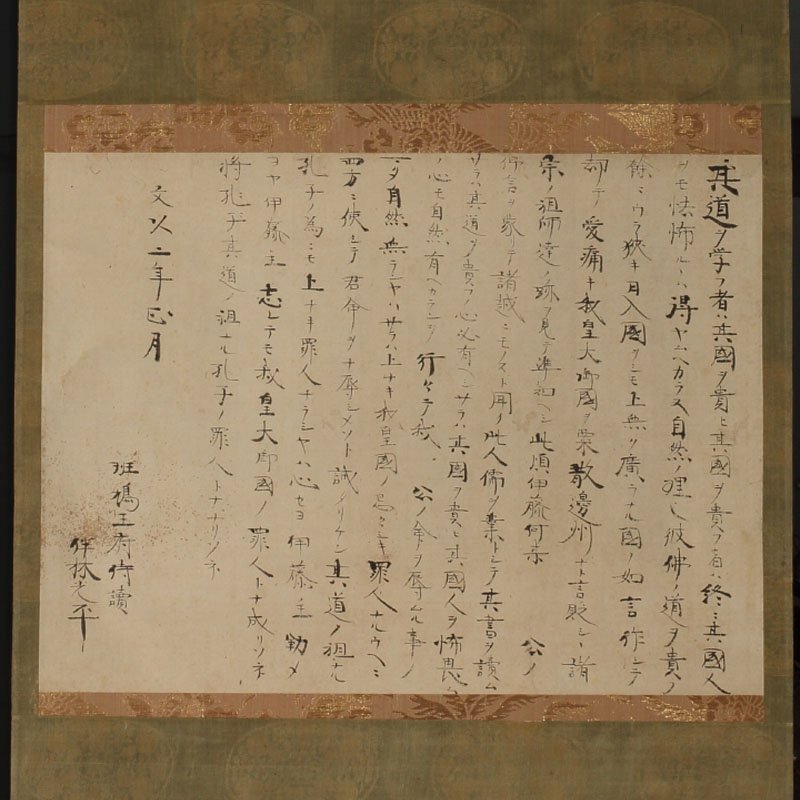 其道ヲ学フ者ハ其國ヲ貴ヒ其國ヲ貴フ者ハ終ニ其國人
ヲモ怯怖ルヽハ得ヤムヘカラス自然ノ理也彼佛ノ道ヲ貴ヘノ
餘ニウラ狭キ日入國ヲシモ上無ク廣ラナル國ノ如言作シテ
却テ愛痛キ我皇大御國ヲ粟散邊州ナト言貶シヽ諸
宗ノ祖師達ノ跡ヲ見テ準知ヘシ此頃伊藤何某 公ノ
仰言ヲ蒙リテ諸越ニモノスト聞ク此人儒ヲ業トシテ其書ヲ讀ム
サラハ其道ヲ貴フ心必有ヘシサラハ其國ヲ貴ヒ其國人ヲ怖畏ム
ノ心モ自然有ヘカラシヲ行々テ我 公ノ命ヲ辱ムル事ノ
ヲ自然無ラシヤハサラハ上ナキ我皇國ノ罪人ナルウヘニ
四方ニ使シテ君命ヲナ辱シメソト誡メリケン其道ノ祖ナル
孔子ノ為ニモ上ナキ罪人ナラシヤハ心セヨ伊藤主勤メ
ヨヤ伊藤主志シテモ我皇大御國ノ罪人トナ成リソネ
将孔子其道ノ祖ナル孔子ノ罪人トナナリソネ
文久二年正月
班鳩王府侍讀
伴林光平